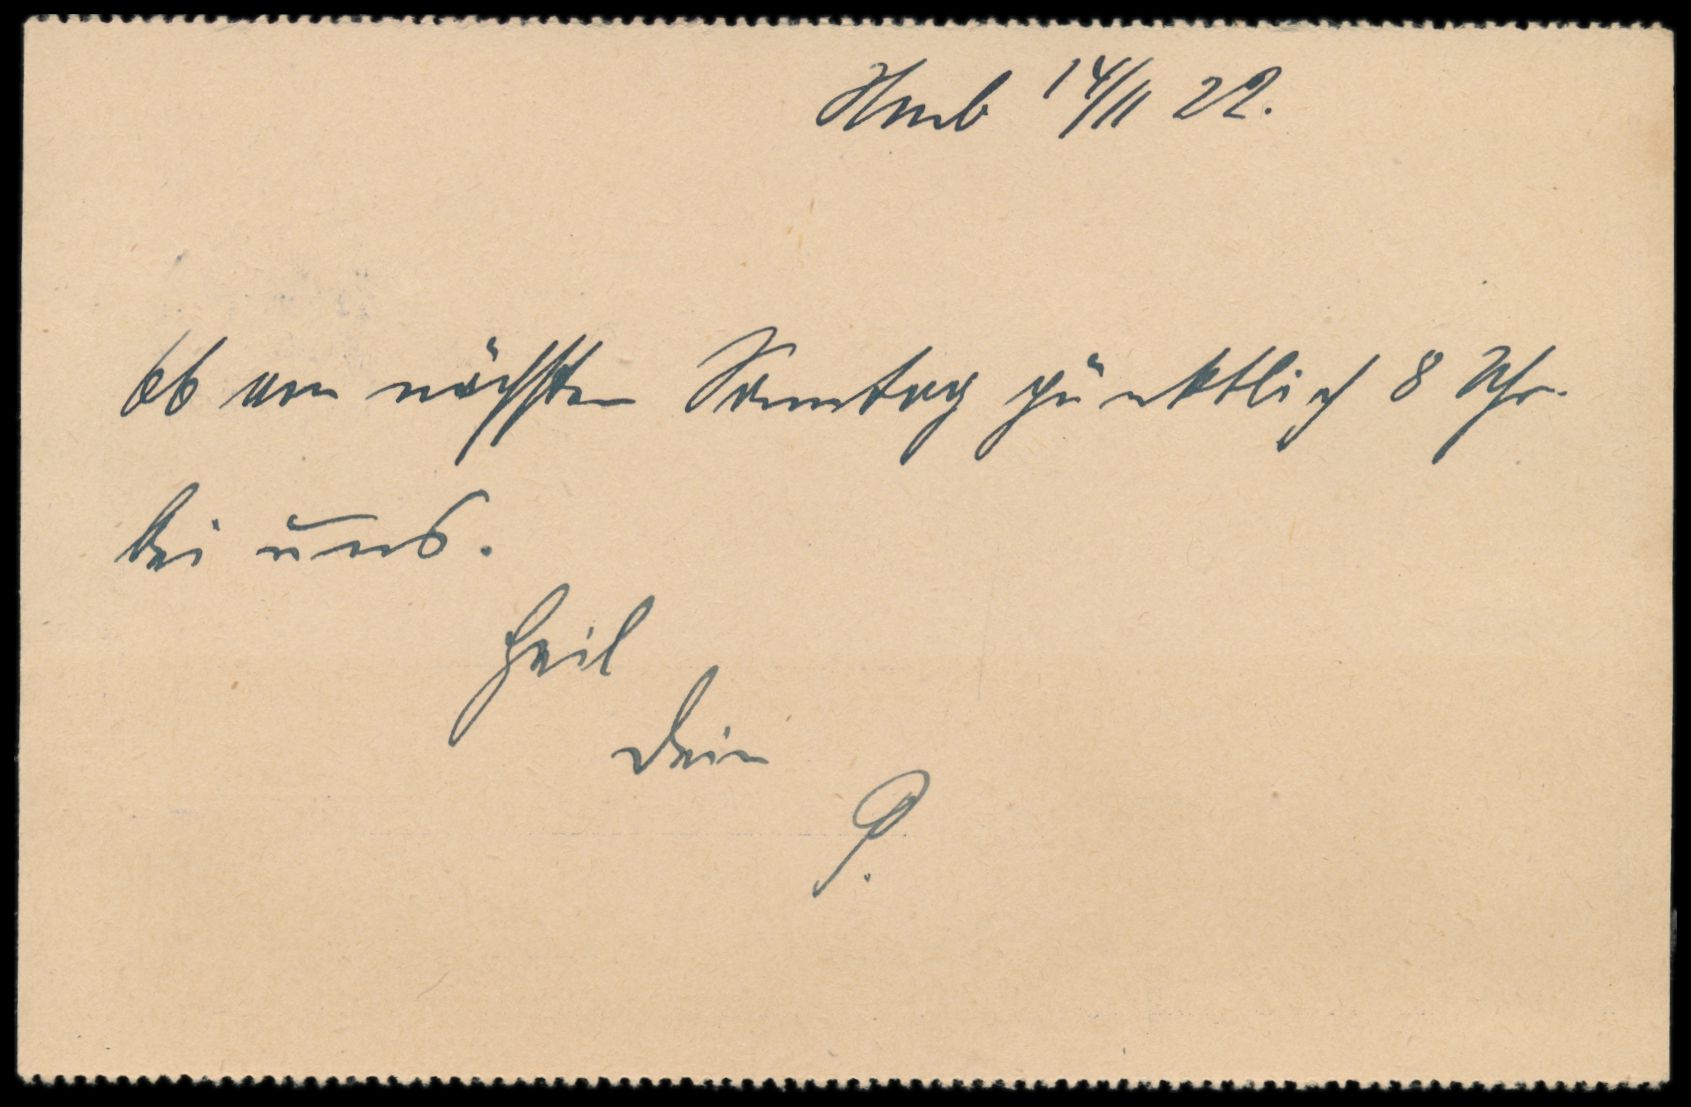 Hmb 14/11 22.
am nächsten Sonntag pünktlich 8 Uhr.
bei uns.
Heil
Dein
P.